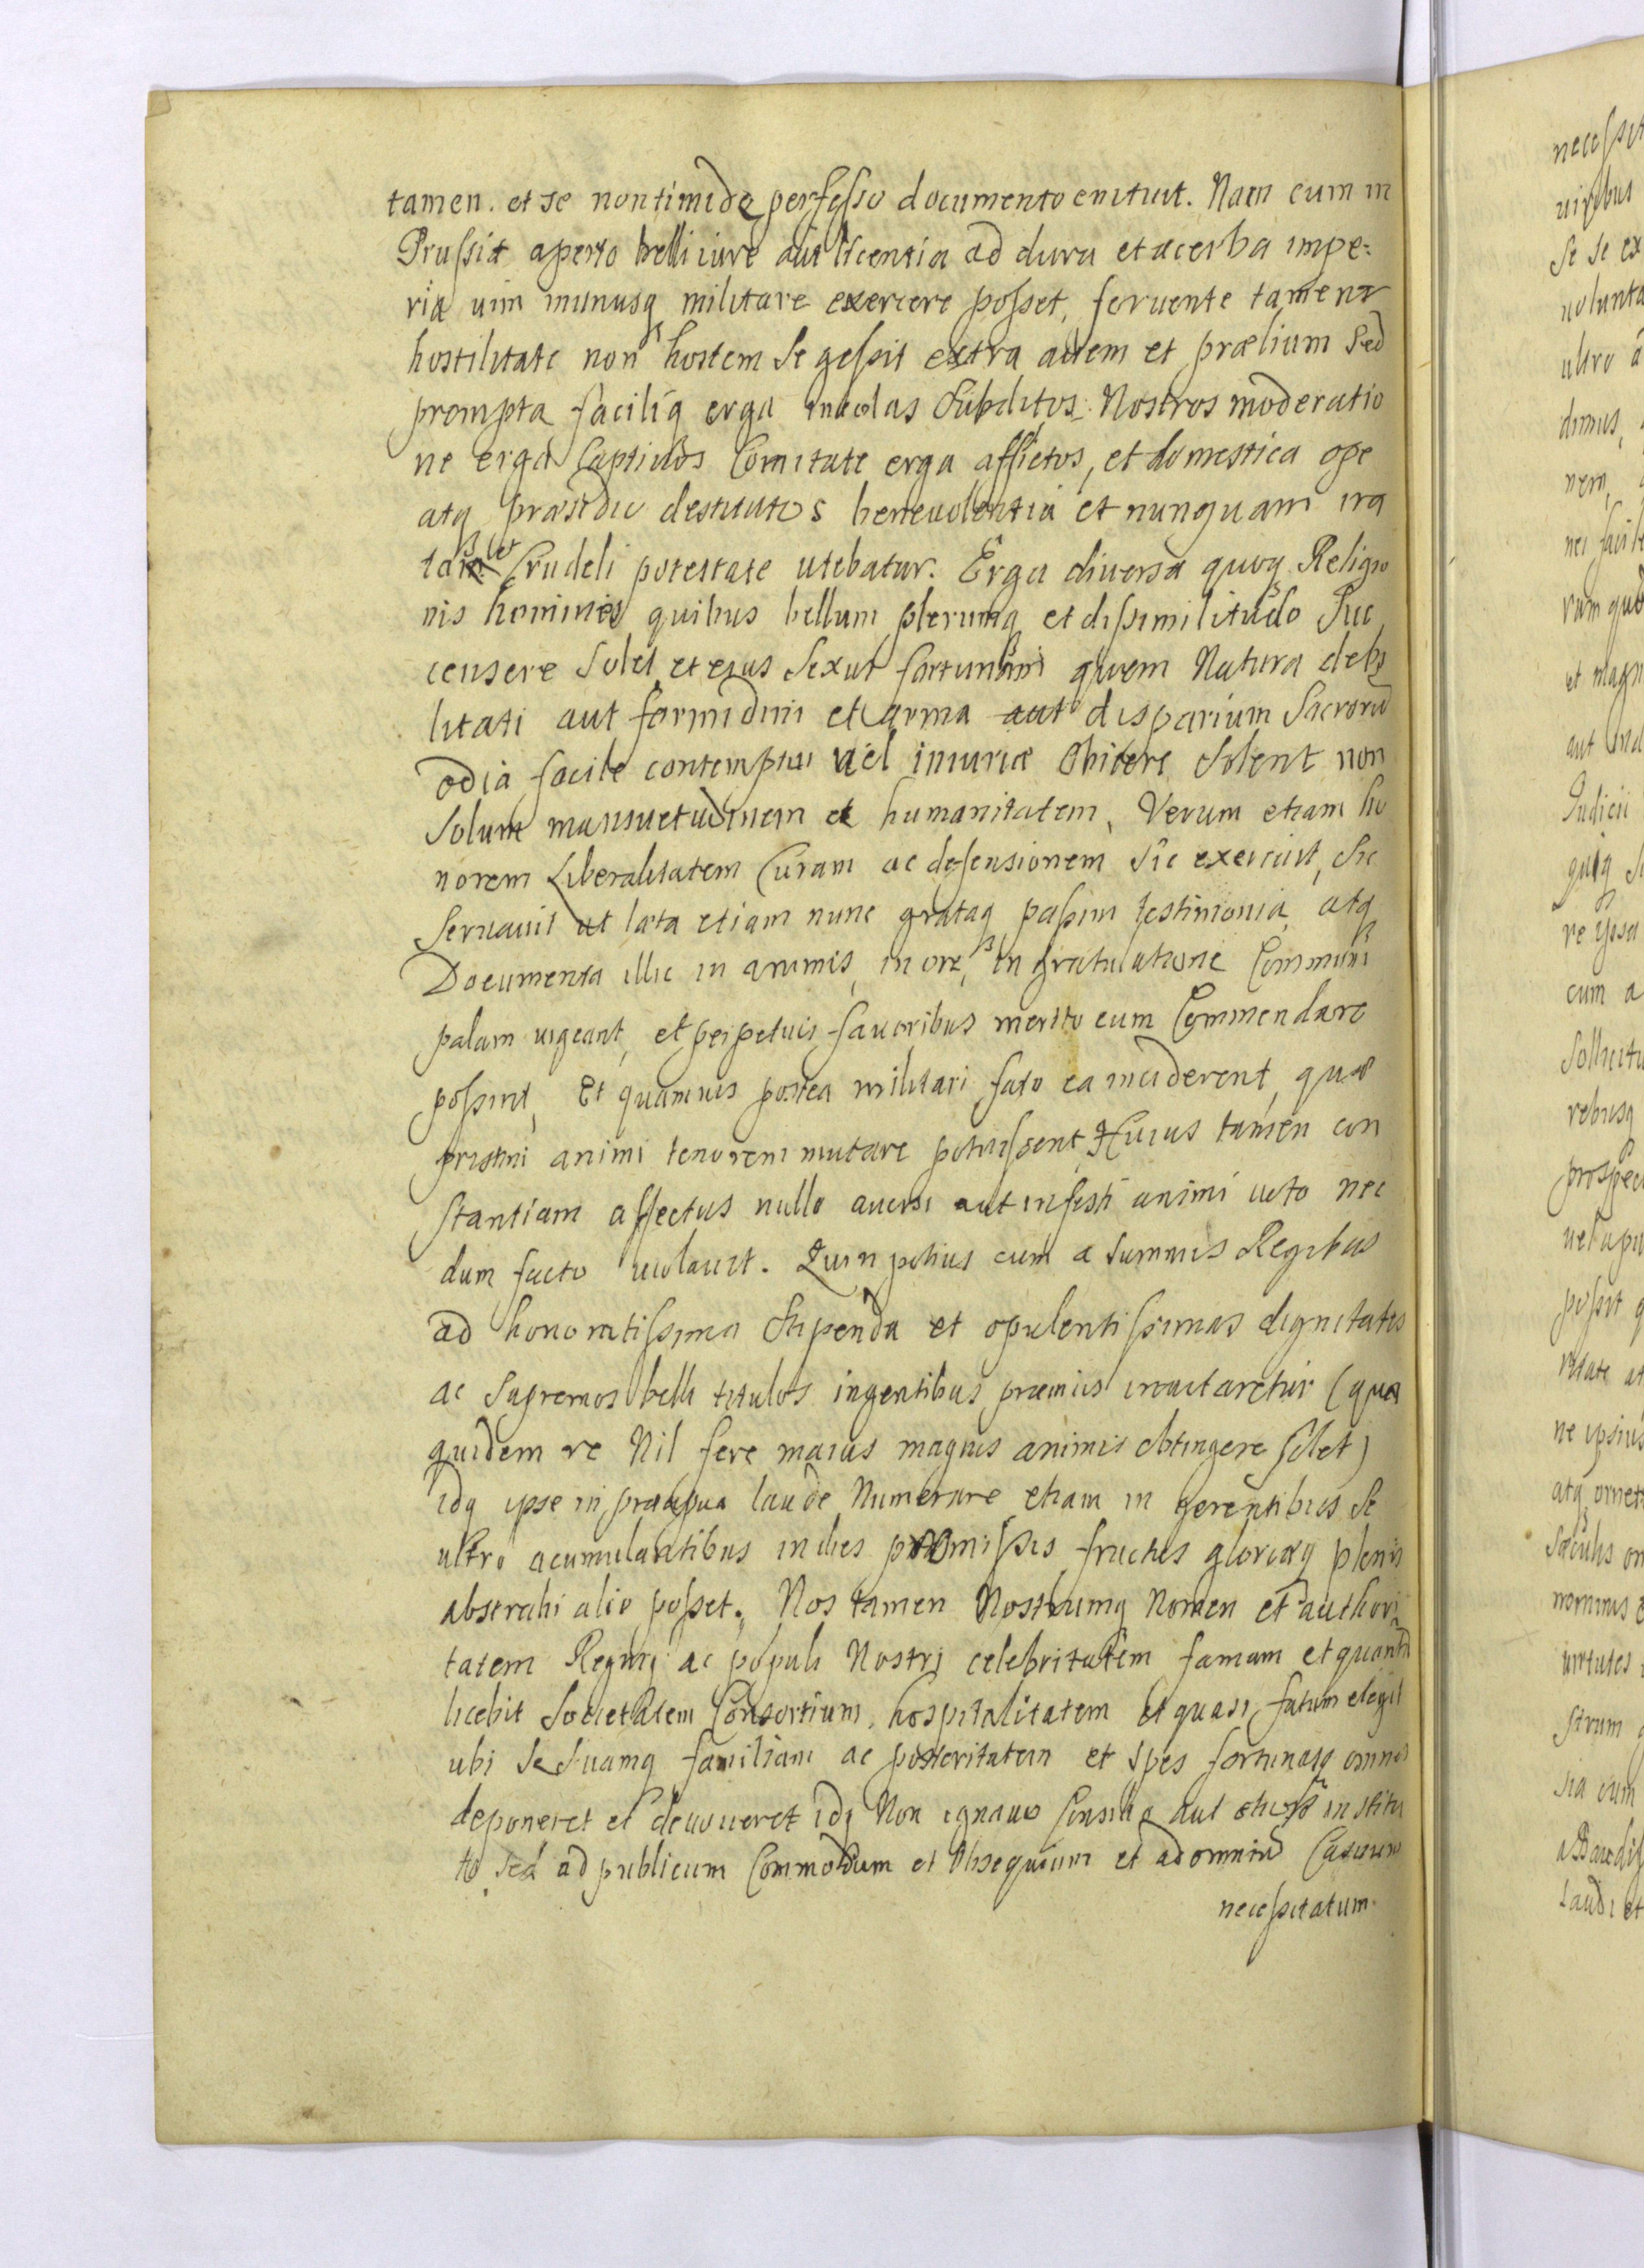 tamen. et se non timide perfesso documento enituit. Nam cum in
Prussia aperto belli iure aut licentia ad dura et acerba impe:
ria uim munusq militare exercere posset, feruente tamen
hostilitate non hostem Se gessit extra aciem et prælium Sed
prompta faciliq erga incolas Subditos Nostros moderatio
ne erga Captiuos Comitate erga afflictos, et domestica ope
atq præsidio destitutos beneuolentia et nunquam ira
tam et Crudeli potestate utebatur. Erga diuersa quoq Religio
nis homines quibus bellum plerumq et dissimilitudo Suc
censere Solet et eius Sexus fortunam quem Natura debi
litati aut formidini et arma aut disparium Sacrorū
odia facile contemptui uel iniuriæ obicere Solent non
Solum mansuetudinem et humanitatem, Verum etiam ho
norem Liberalitatem Curam ac defensionem Sic exercuit, Sic
Seruauit ut læta etiam nunc grataq passim testimonia atq
Documenta illic in animis, in ore, in gratulatione Communi
palam uigeant, et perpetuis fauoribus merito eum Commendare
possint, Et quamuis postea militari fato ea inciderent, quæ
pristini animi tenorem mutare potuissent, Huius tamen con
stantiam affectus nullo auersi aut infesti animi uoto nec
dum facto uiolauit. Quin potius cum a Summis Regibus
ad honoratissima Stipendia et opulentissimas dignitates
ac Supremos belli titulos ingentibus præmiis inuitaretur (qua
quidem re Nil fere maius magnis animis obtingere solet)
idq ipse in præcipua laude Numerare etiam in gerentibus Se
ultro acumulantibus in dies promissis fructus gloriæq plenis
abstrahi alio posset. Nos tamen Nostrumq Nomen et authori
tatem Regniq ac populi Nostri celebritatem famam et quantū
licebit Societatem Consortium, hospitalitatem et quasi fatum elegit
ubi Se Suamq familiam ac posteritatem et Spes fortunasq omnes
deponeret et deuoueret idq Non ignauo Consilio aut otioso institu
to Sed ad publicum Commodum et Obsequium et ad omniū Casuum
necessitatum.